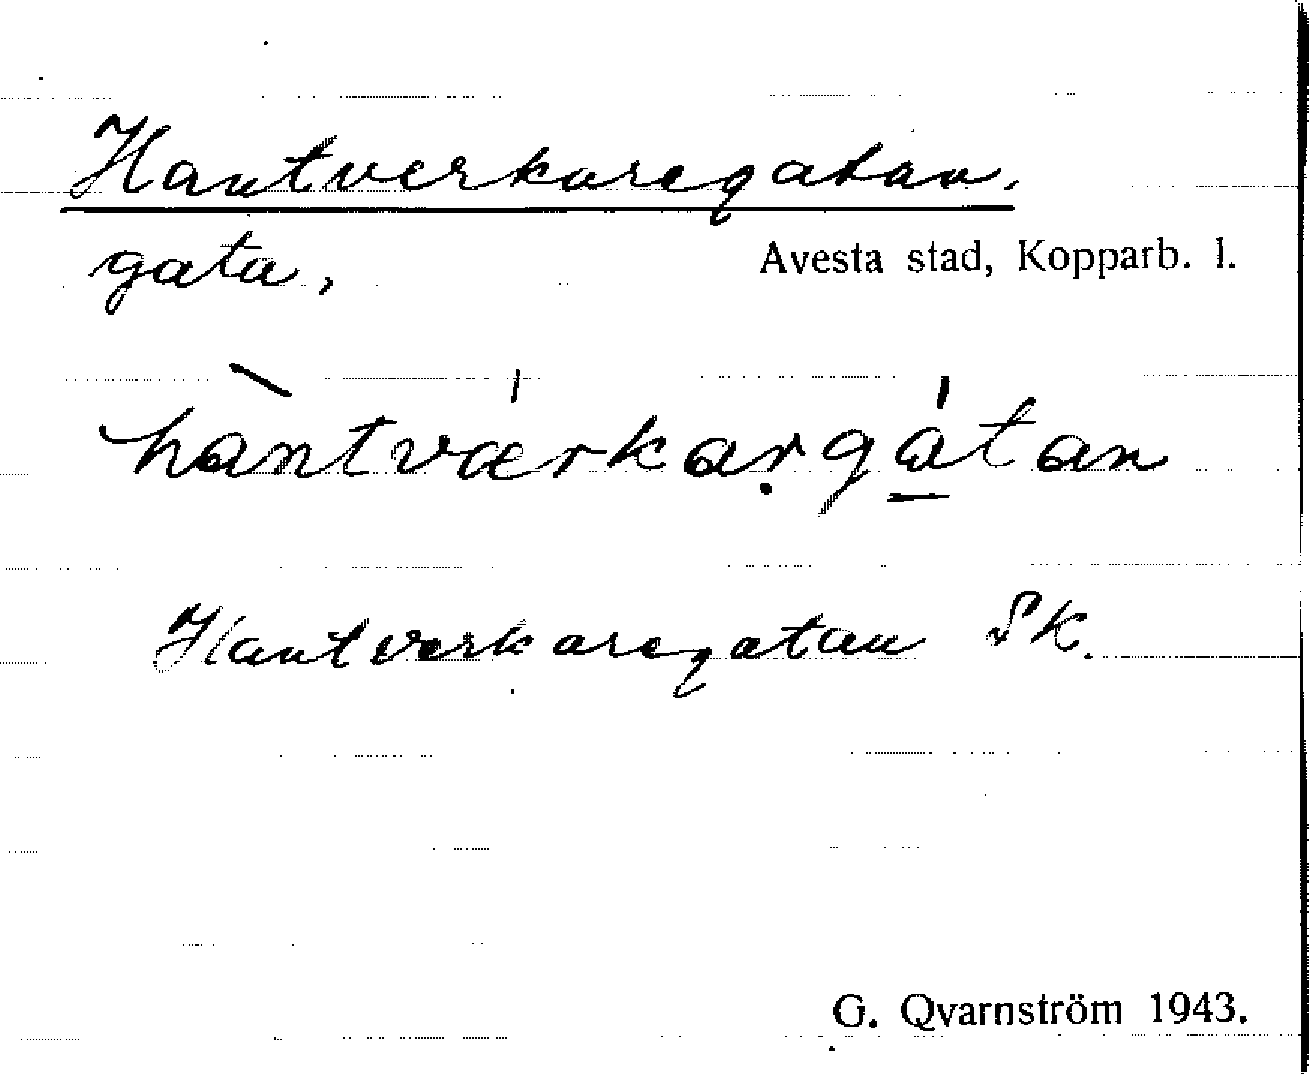 Hantverkaregatan,
gata, Avesta stad, Kopparb. l.
hàntværkarg̣atan
Hantverkaregatan SK.
G. Qvarnström 1943.